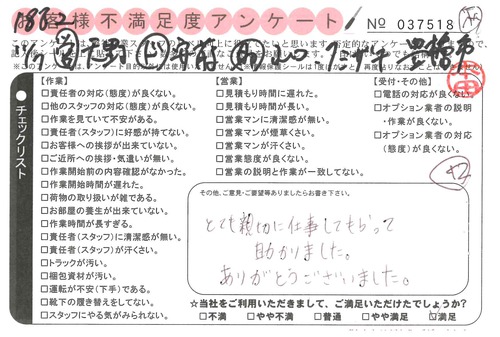 お客様不満足度アンケート
№ 037518
チェックリスト
【作業】
□責任者の対応(態度)が良くない。
□他のスタッフの対応(態度)が良くない。
□作業を見ていて不安がある。
□責任者(スタッフ)に好感が持てない。
□お客様への挨拶が出来ていない。
□ご近所への挨拶・気遣いが無い。
□作業開始前の内容確認がなかった。
□作業開始時間が遅れた。
□荷物の取り扱いが雑である。
□お部屋の養生が出来ていない。
□作業時間が長すぎる。
□責任者(スタッフ)に清潔感が無い。
□責任者(スタッフ)が汗くさい。
□トラックが汚い。
□梱包資材が汚い。
□運転が不安(下手)である。
□靴下の履き替えをしてない。
□スタッフにやる気がみられない。
【営業】
□見積もり時間に遅れた。
□見積もり時間が長い。
□営業マンに清潔感が無い。
□営業マンが煙草くさい。
□営業マンが汗くさい。
□営業態度が良くない。
□営業の説明と作業が一致してない。
【受付・その他】
□電話の対応が良くない。
□オプション業者の説明
・作業が良くない。
□オプション業者の対応
(態度)が良くない。
その他、ご意見・ご要望等ありましたらお書き下さい。
とても親切に仕事してもらって
助かりました。
ありがとうございました。
☆当社をご利用いただきまして、ご満足いただけたでしょうか?
□不満 □やや不満 □普通 □やや満足 ☑満足